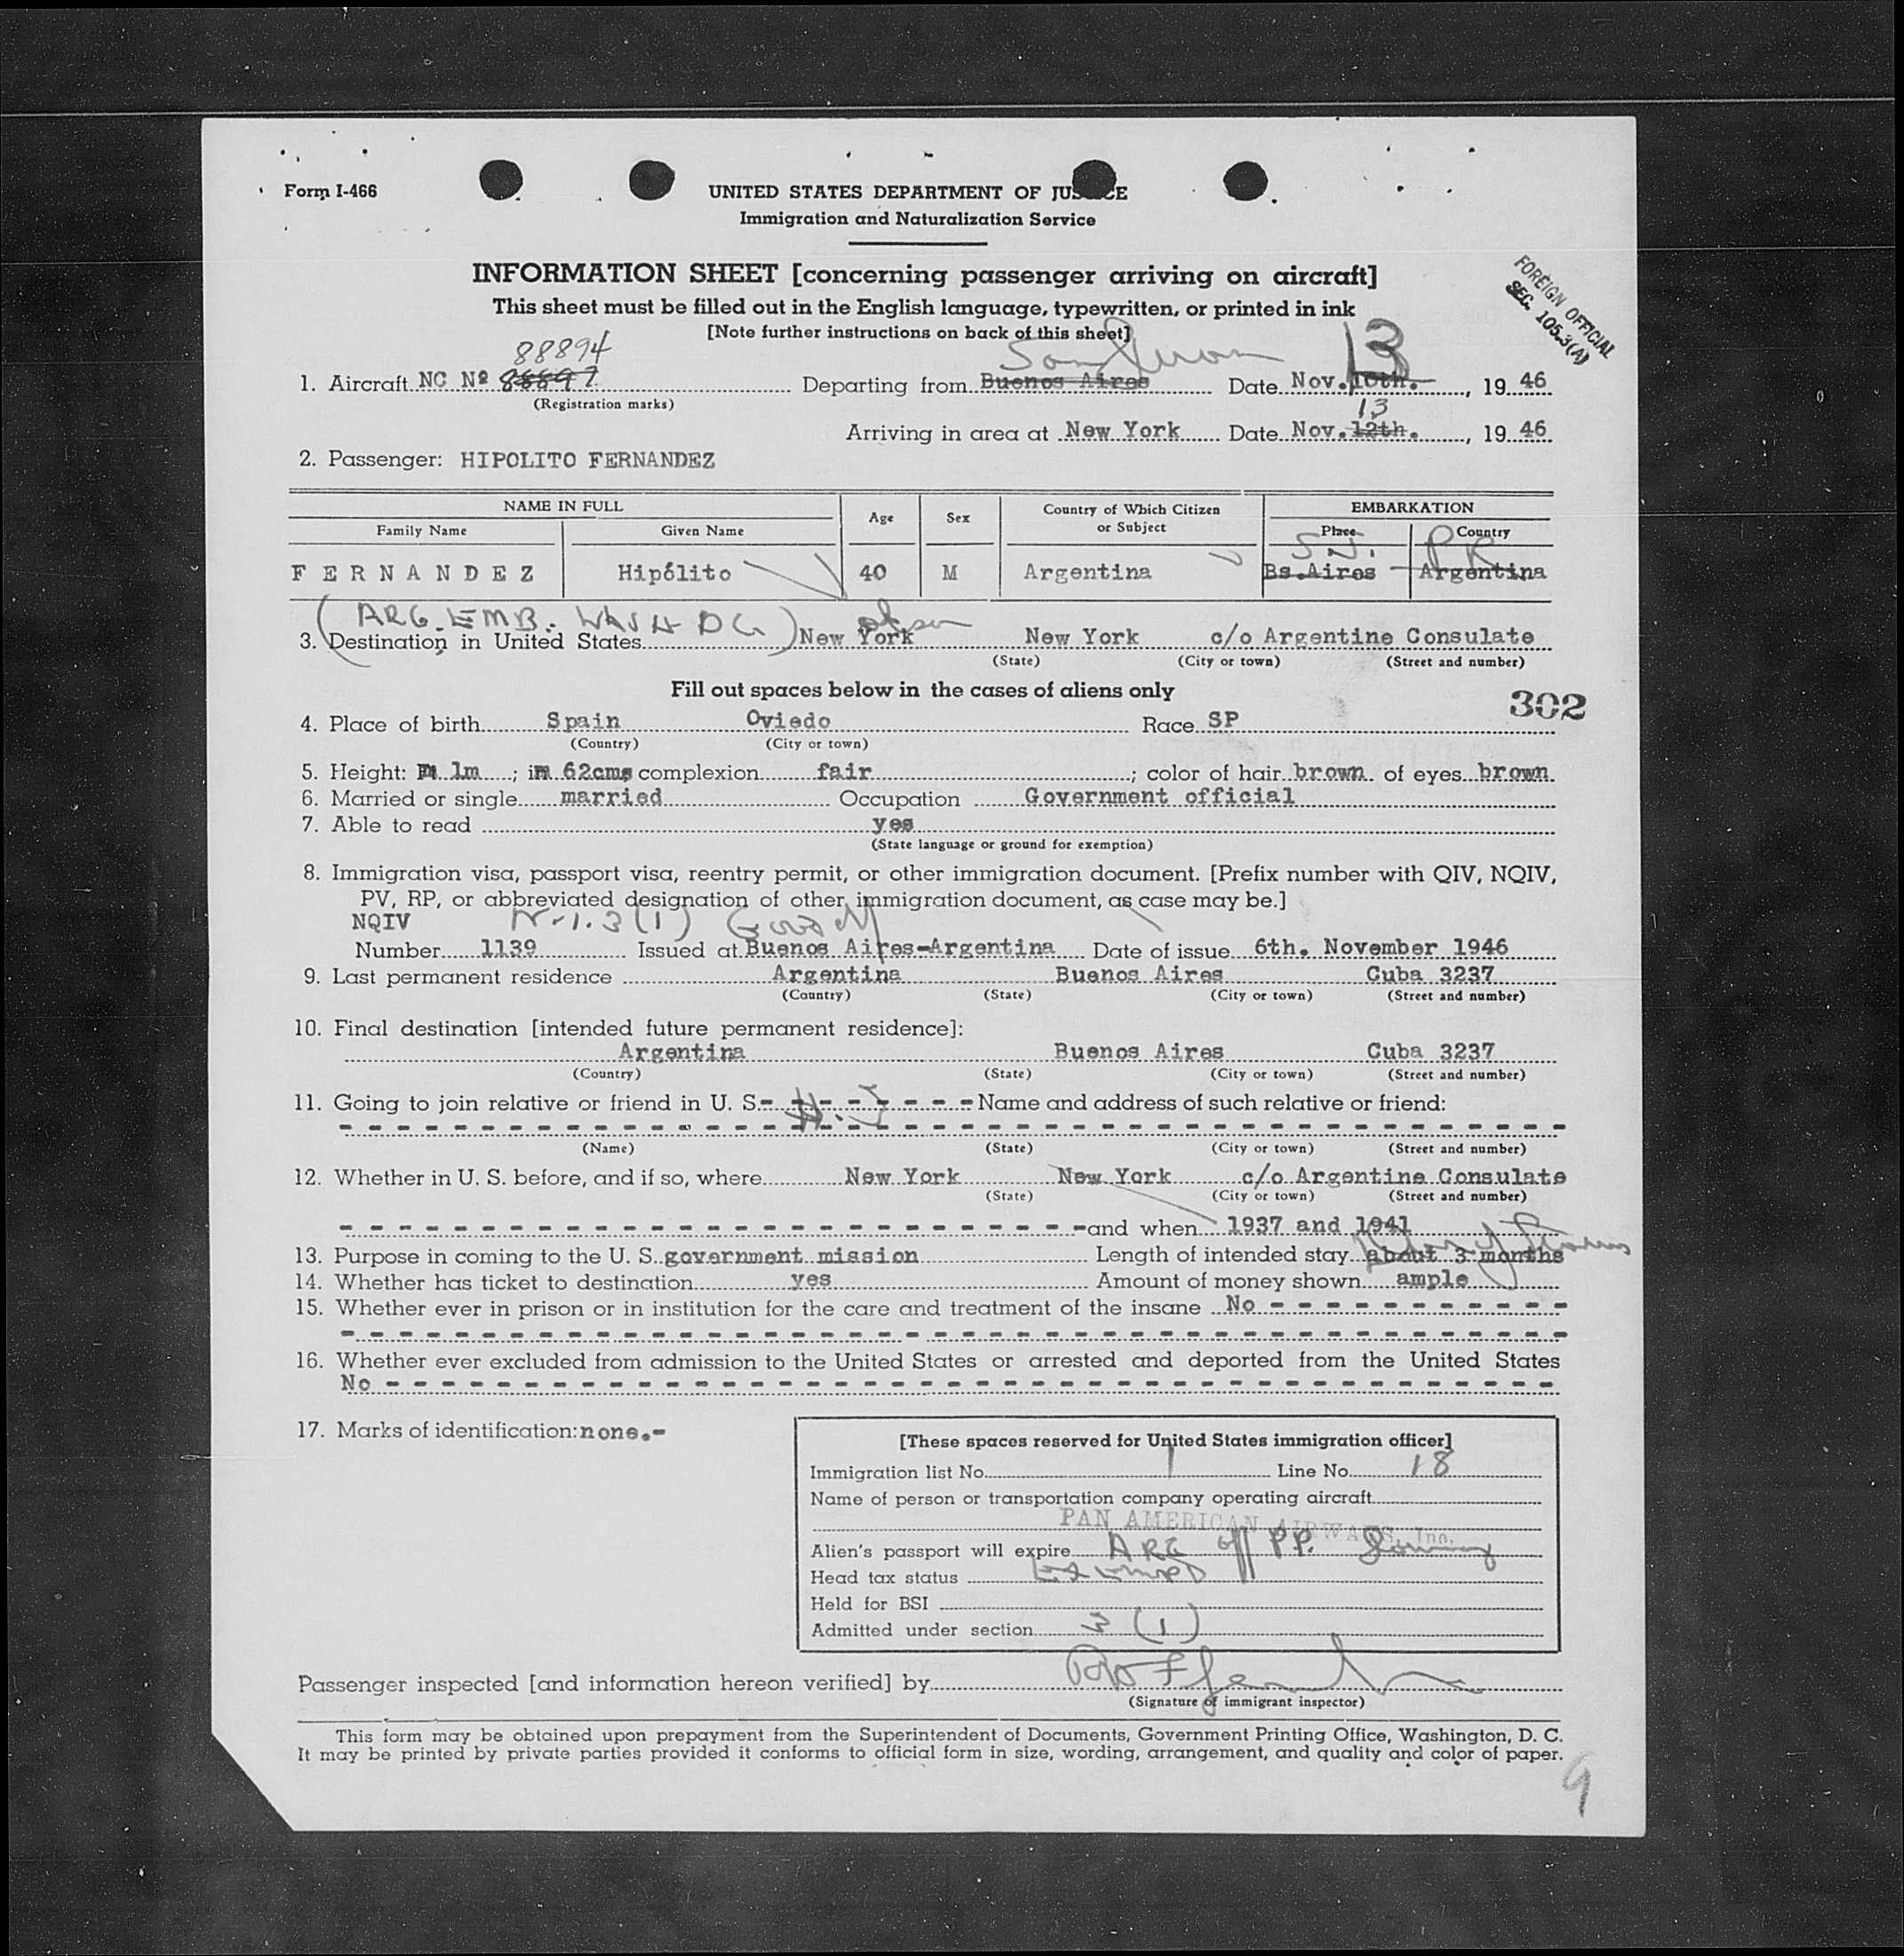 Form I-466
UNITED STATES DEPARTMENT OF JUSTICE
Immigration and Naturalization Service
INFORMATION SHEET [concerning passenger arriving on aircraft]
This sheet must be filled out in the English language, typewritten, or printed in ink
[Note further instructions on back of this sheet]
FOREIGN OFFICIAL
SEC. 105.3(A)
88894 San Juan 13
1. Aircraft NC Nº 88897 Departing from Buenos Aires Date Nov. 10th. , 19 46
(Registration marks)
13
Arriving in area at New York Date Nov. 12th. , 19 46
2. Passenger: HIPOLITO FERNANDEZ
NAME IN FULL Age Sex Country of Which Citizen or Subject EMBARKATION
Family Name Given Name Place Country
S.J. PR
FERNANDEZ Hipólito 40 M Argentina Bs.Aires Argentina
(ARG. EMB. WASH DC)
3. Destination in United States New York New York c/o Argentine Consulate
(State) (City or town) (Street and number)
Fill out spaces below in the cases of aliens only
302
4. Place of birth Spain Oviedo Race SP
(Country) (City or town)
5. Height: 1m ; 62cms complexion fair ; color of hair brown of eyes brown
6. Married or single married Occupation Government official
7. Able to read yes
(State language or ground for exemption)
8. Immigration visa, passport visa, reentry permit, or other immigration document. [Prefix number with QIV, NQIV,
PV, RP, or abbreviated designation of other immigration document, as case may be.]
NQIV 3(1)
Number 1139 Issued at Buenos Aires-Argentina Date of issue 6th. November 1946
9. Last permanent residence Argentina Buenos Aires Cuba 3237
(Country) (State) (City or town) (Street and number)
10. Final destination [intended future permanent residence]:
Argentina Buenos Aires Cuba 3237
(Country) (State) (City or town) (Street and number)
11. Going to join relative or friend in U. S. - - - - - - - - Name and address of such relative or friend:
(Name) (State) (City or town) (Street and number)
12. Whether in U. S. before, and if so, where New York New York c/o Argentine Consulate
(State) (City or town) (Street and number)
and when 1937 and 1941
13. Purpose in coming to the U. S. government mission Length of intended stay about 3 months
14. Whether has ticket to destination yes Amount of money shown ample
15. Whether ever in prison or in institution for the care and treatment of the insane No - - - - - - - - - - -
16. Whether ever excluded from admission to the United States or arrested and deported from the United States
No - - - - - - - - - - - - - - - - - - - -
17. Marks of identification: none.-
[These spaces reserved for United States immigration officer]
Immigration list No. 1 Line No. 18
Name of person or transportation company operating aircraft
PAN AMERICAN AIRWAYS, Inc.
Alien's passport will expire ARG off PP.
Head tax status Exempt
Held for BSI
Admitted under section 3(1)
Passenger inspected [and information hereon verified] by
(Signature of immigrant inspector)
This form may be obtained upon prepayment from the Superintendent of Documents, Government Printing Office, Washington, D. C.
It may be printed by private parties provided it conforms to official form in size, wording, arrangement, and quality and color of paper.
9